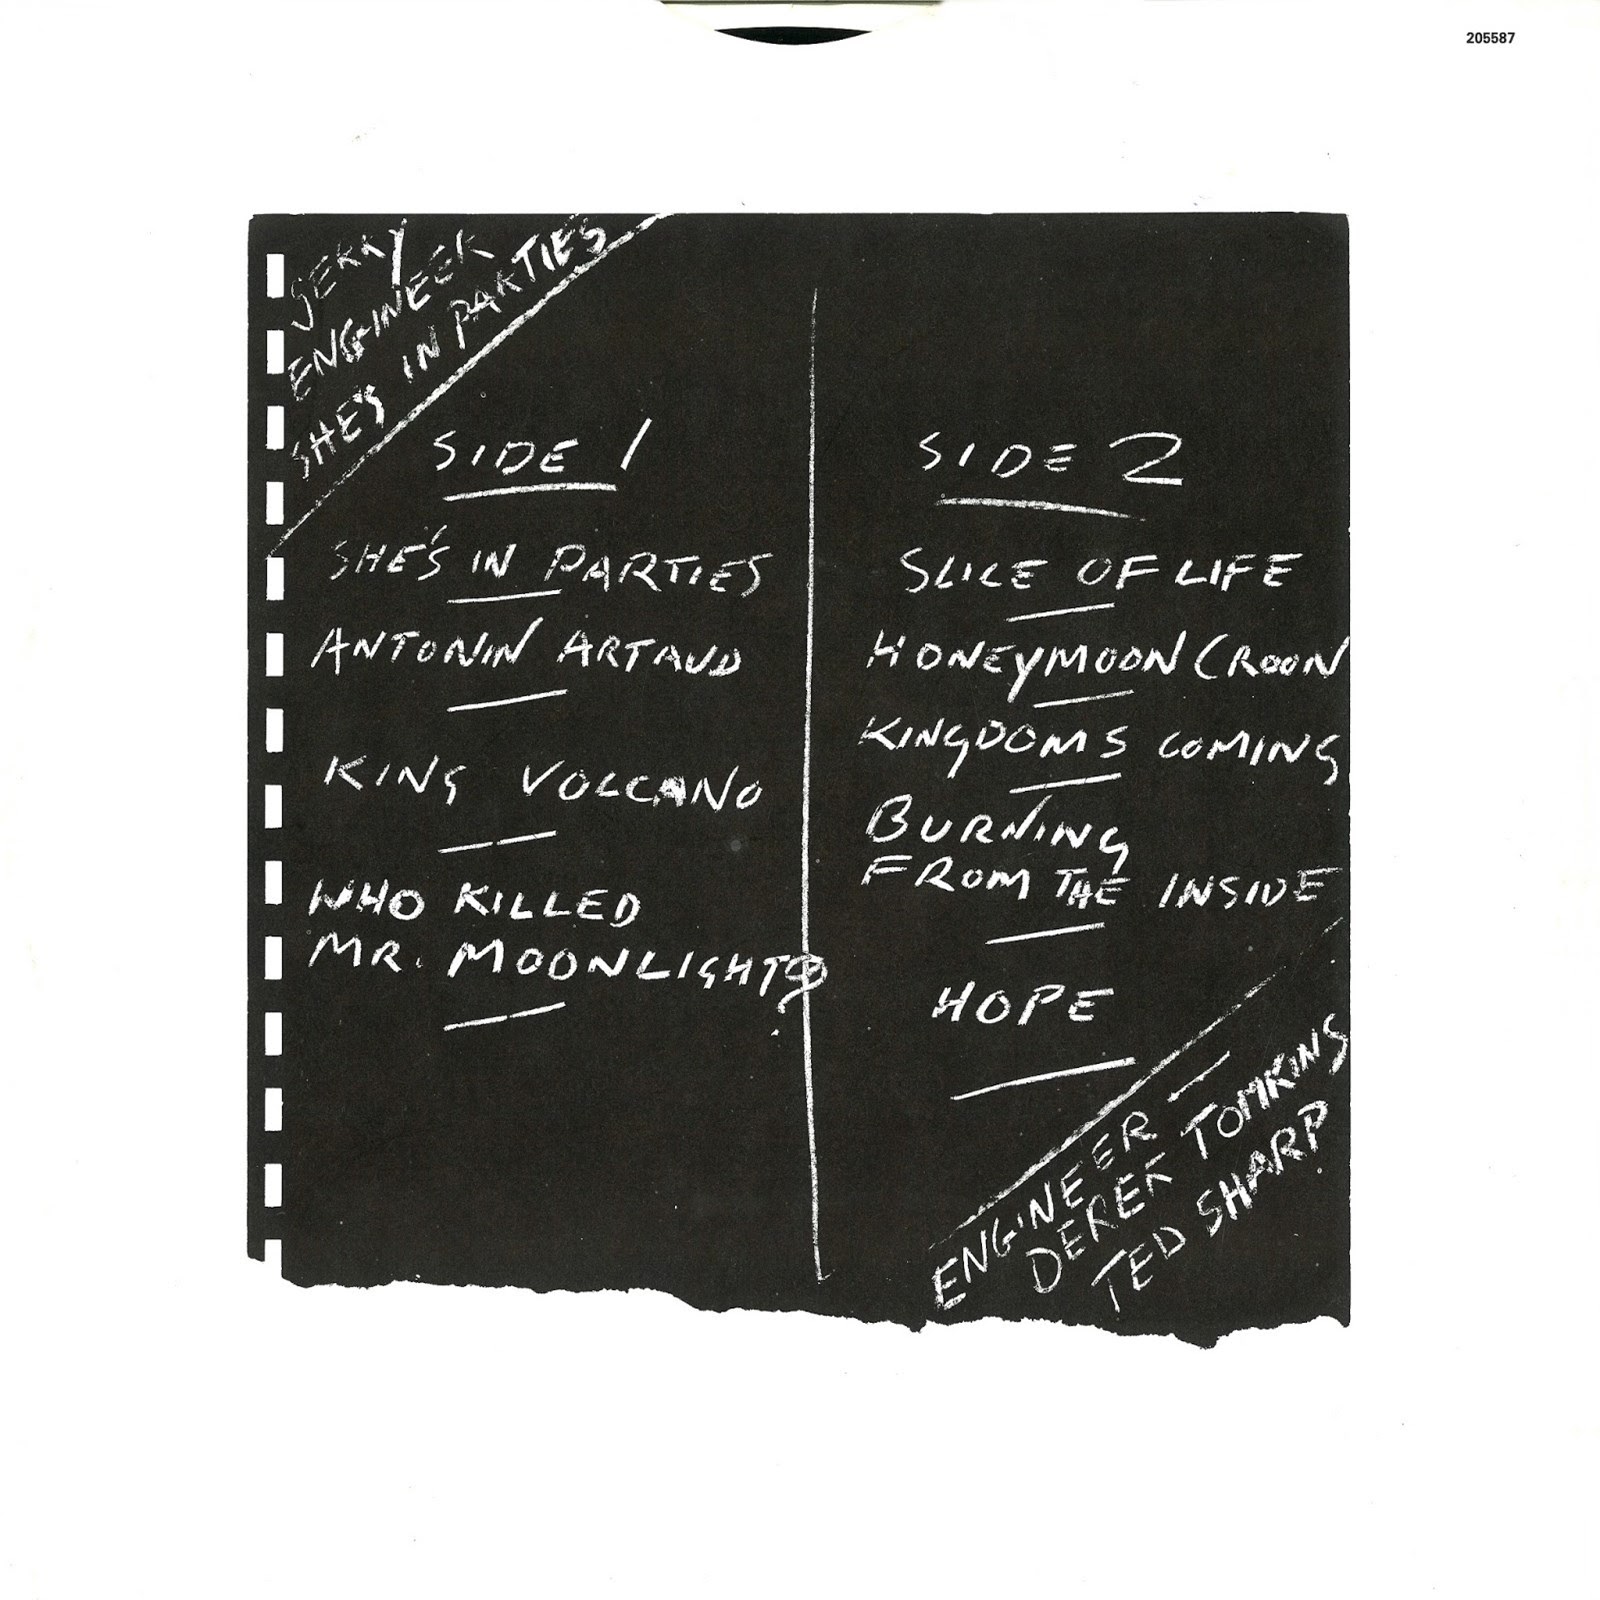 205587
JERRY
ENGINEER
SHE'S IN PARTIES
SIDE 1
SHE'S IN PARTIES
ANTONIN ARTAUD
KING VOLCANO
WHO KILLED
MR. MOONLIGHT?
SIDE 2
SLICE OF LIFE
HONEYMOON CROON
KINGDOMS COMING
BURNING
FROM THE INSIDE
HOPE
ENGINEER —
DEREK TOMKINS
TED SHARP